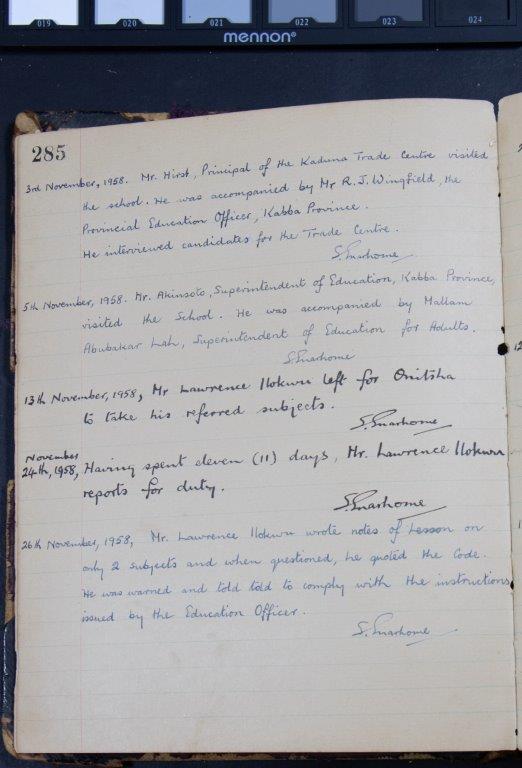 019 020 021 022 023 024
mennon®
285
3rd November, 1958. Mr. Hirst, Principal of the Kaduna Trade Centre visited
the school. He was accompanied by Mr R. J. Wingfield, the
Provincial Education Officer, Kabba Province.
He interviewed candidates for the Trade Centre.
S. Enarhome
5th November, 1958. Mr. Akinsoto, Superintendent of Education, Kabba Province,
visited the School. He was accompanied by Mallam
Abubakar Lah, Superintendent of Education for Adults.
S. Enarhome
13th November, 1958, Mr Lawrence Ilokwu left for Onitsha
to take his referred subjects.
S. Enarhome
November
24th, 1958, Having spent eleven (11) days, Mr. Lawrence Ilokwu
reports for duty.
S. Enarhome
26th November, 1958, Mr. Lawrence Ilokwu wrote notes of Lesson on
only 2 subjects and when questioned, he quoted the Code.
He was warned and told told to comply with the instructions
issued by the Education Officer.
S. Enarhome